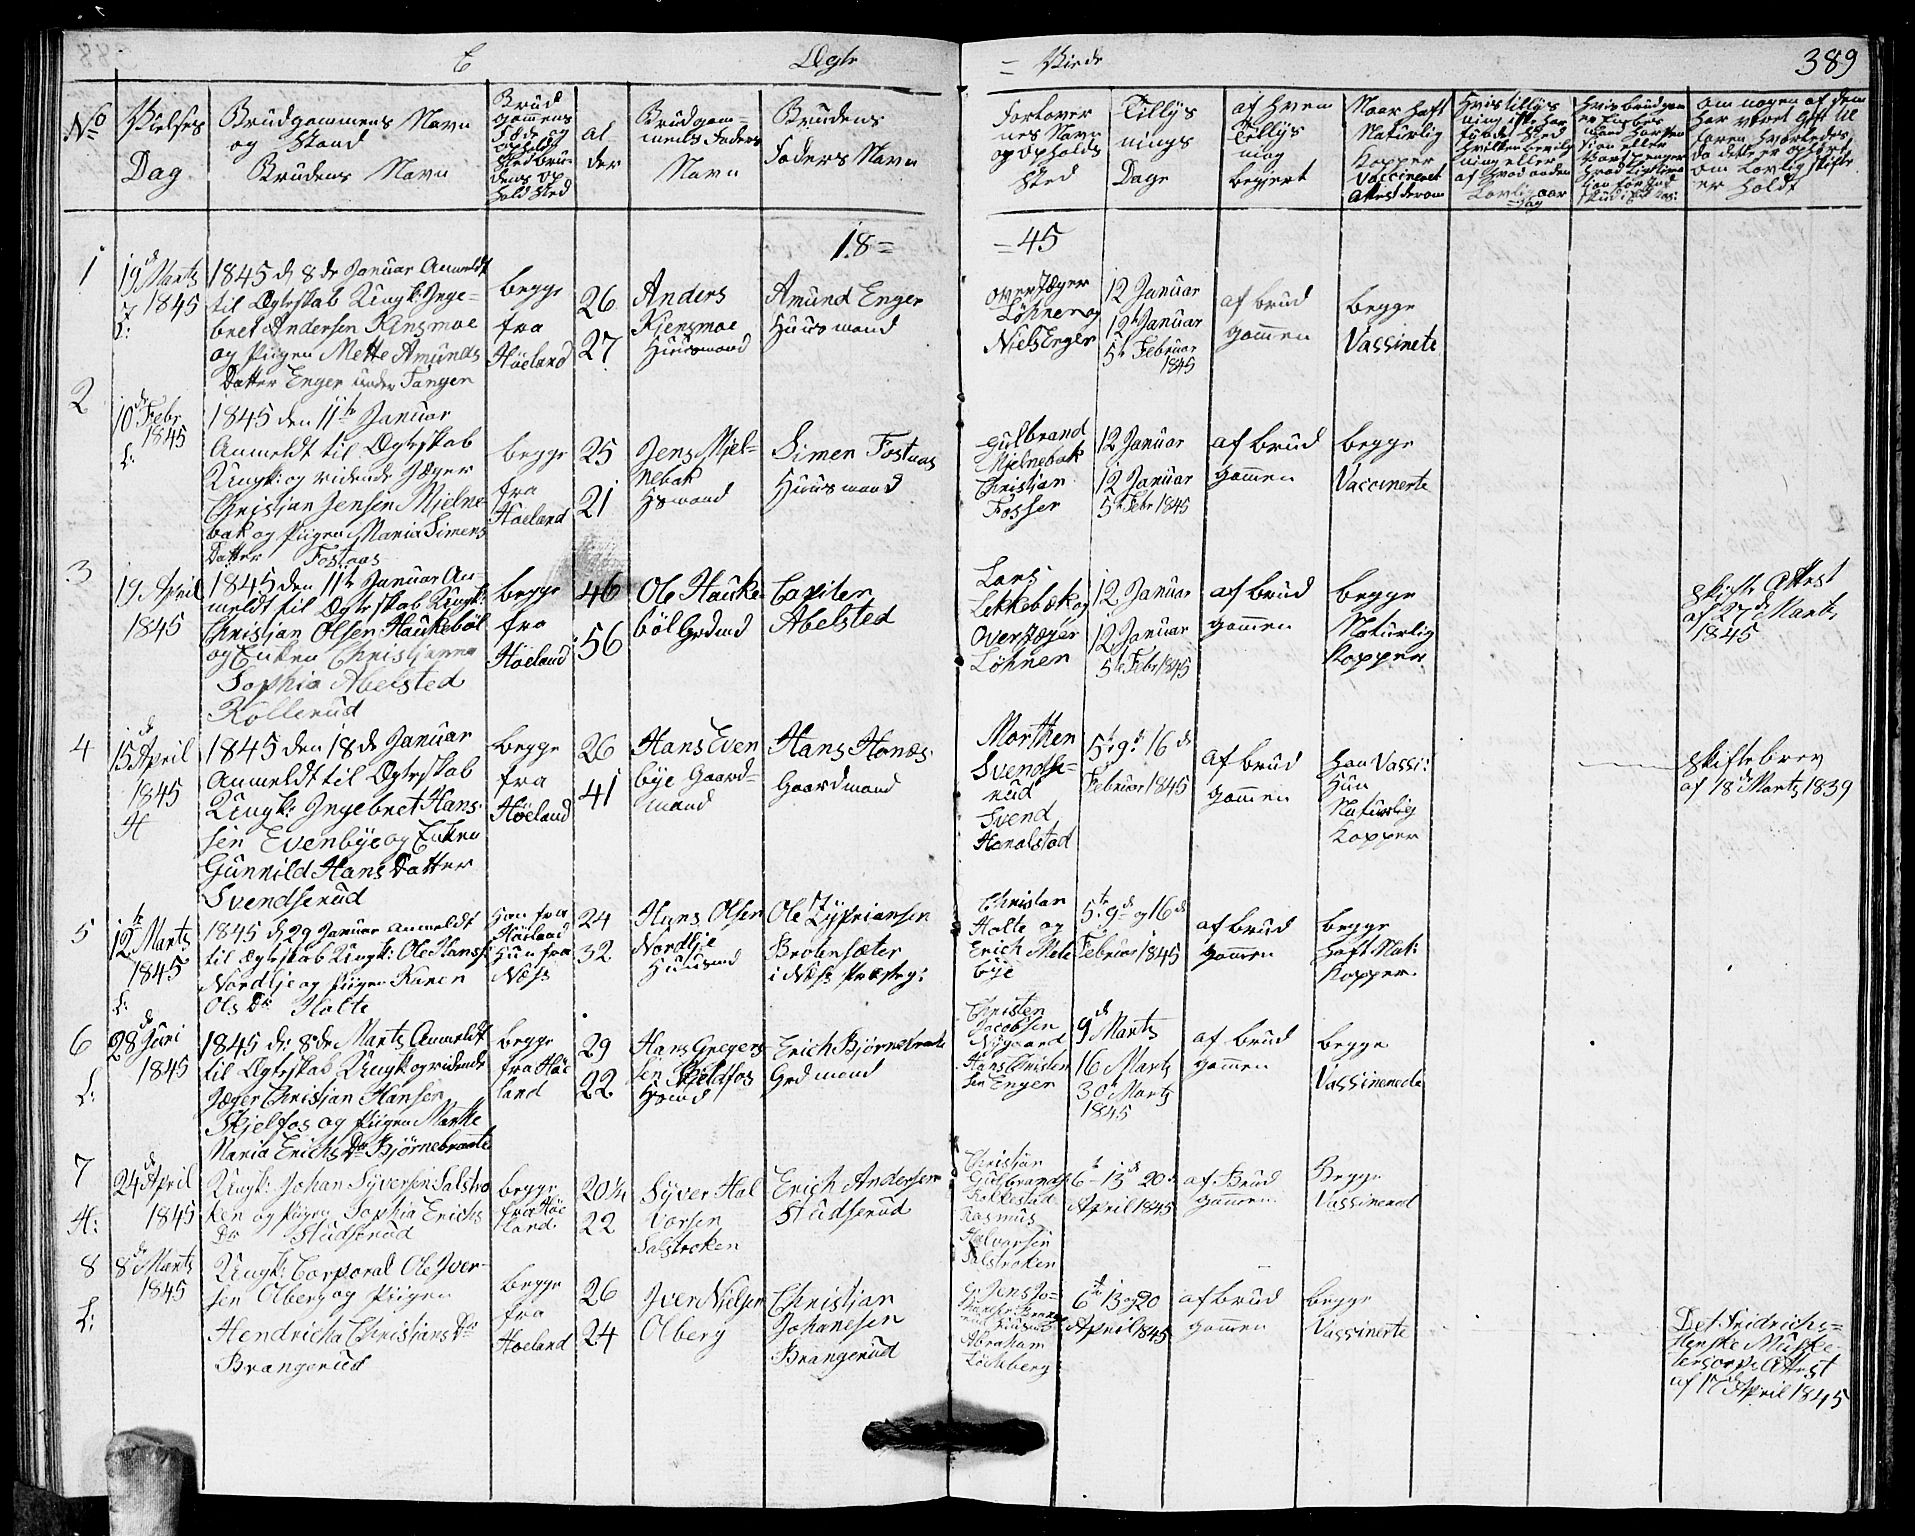 E Ægte = Viede 389
No
Vielses Dag
Brudgommens Navn
og Stand
Brudens Navn
Brud
gommens
Føde og
opholds
sted bru
dens op
hold sted
al
der
Brudgom=
mens Faders
Navn
Brudens
Faders Navn
Forlover
nes Navn
og opholds
sted
Tillys
nings
Dage
af hvem
Tillys
ning
begjert
Naar haft
Naturlig
Kopper
Vaccineret
Attest derom
om nogen af dem
har været gift til
foren hvorledes
da dette er ophørt
om Lovlig skifte
er holdt
18=
=45
1
19d Marts
1845
L:
1845 d 8de Januar Anmeldt
til Ægteskab Ungk: Inge=
bret Andersen Kinsmoe
og Pigen Mette Amunds
Datter Enger under Tangen
begge
fra
Høeland
26
27
Anders
Kjensmoe
Huusmand
Amund Enger
Huusmand
Over Jæger
Løhnen og
Niels Enger
12 Januar
19de Januar
5te Februar
1845
af brud
gommen
begge
Vassinete
2
10de Febr
1845
L:
1845 den 11te Januar
Anmeldt til Ægteskab
Ungk: og ridende Jæger
Christjan Jensen Mjelne
bak og Pigen Maria Simens
Datter Fostaas
begge
fra
Høeland
25
21
Jens Mjel=
nebak
Hsmand
Simen Fostaas
Huusmand
Gulbrand
Mjelnebak
Christjan
Fosser
12 Januar
12 Januar
5te Febr 1845
af brud
gommen
begge
Vaccinerte
3
19 April
1845
1845 den 11te Januar An=
meldt til Ægteskab Ungk:
Christjan Olsen Haukebøl
og Enken Christjanna
Sophia Abelsted
Kollerud
begge
fra
Høeland
46
56
Ole Hauke=
bøl Grdmd
Abelsted
Lars
Lekkebæk og
Overjæger
Løhnen
12 Januar
12 Januar
5te Febr 1845
af brud
gommen
begge
Naturlig
Kopper
Skifte Attest
af 27de Marts
1845
4
15de April
1845
H
1845 den 18de Januar
Anmeldt til Ægteskab
Ungk: Ingebret Hans
sen Evenbye og Enken
Gunnild Hans Datter
Svendserud
begge
fra
Høeland
26
41
Hans Even
bye Gaard=
mand
Hans Honæs
Gaardmand
Morthen
Svendse=
rud
Svend
Hanalstad
5te 9de 16de
Februar 1845
af brud
gommen
Han Vassi:
Hun
Naturlig
Kopper
Skiftebrev
af 18de Marts 1839
5
12te Marts
1845
L:
1845 d 29 Januar Anmeldt
til Ægteskab Ungk: Ole Hanss:
Nordlje og Pigen Karen
Ols Dr Holte
Han fra
Høeland
Hun fra
Næs
24
32
Hans Olsen
Nordlje
Huusmd
Ole Zypriansen
Brotensæter
i Næss Præstegj:
Christian
Holte og
Erich Mele
bye
5te 9de og 16de
Februar 1845
af brud
gommen
begge
haft Nat:
Kopper
6
28de Juni
1845
L:
1845 d: 8de Marts Anmeldt
til Ægteskab Ungk og ridende
Jæger Christjan Hansen
Skjelfos og Pigen Marthe
Maria Erichs Dr Bjørnebraate
begge
fra Høe
land
29
22
Hans Gregers
sen Skjelfos
Hsmd
Erich Bjørnebraate
Grdmand
Christen
Jacobsen
Nygaard
Hans Christen
sen Enger
9de Marts
16 Marts
30te Marts
1845
af brud
gommen
begge
Vassinerede
7
24de April
1845
H:
Ungk: Johan Syversen Salstro
ken og Pigen Sophia Erichs
Dr Studserud
begge
fra Høe
land
20 1/4
22
Syver Hal
vorsen
Salstroken
Erich Andersen
Studserud
Christjan
Gulbrands
Kokkestad
Rasmus
Halvorsen
Salstroken
6te 13de 20de
April 1845
af Brud
gommen
Begge
Vassinered
8
8de Marts
1845
L:
Ungk: Corporal Ole Iver=
sen Olberg og Pigen
Hendricha Christjans Dr
Brangerud
begge
fra
Høeland
26
24
Iver Nielsen
Olberg
Christjan
Johanesen
Brangerud
Abraham
Lochberg
6te 13 og 20
April 1845
af brud
gommen
begge
Vassinerte
Det Fridrichs=
Henske Muske=
tercorps Attest
af 17de April 1845